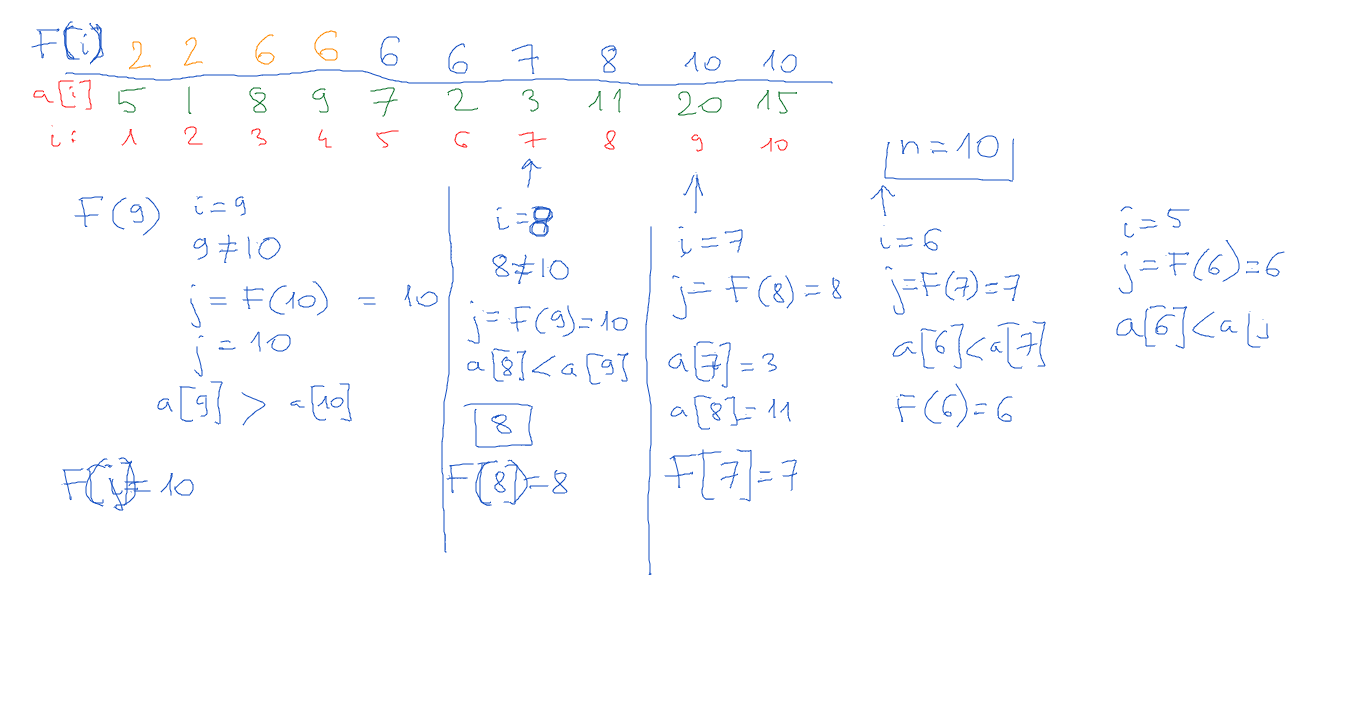 F[i] 2 2 6 6 6 6 7 8 10 10
a[i] 5 1 8 9 7 2 3 11 20 15
i: 1 2 3 4 5 6 7 8 9 10
n=10
F(9) i=9
9≠10
j=F(10) = 10
j=10
a[9] > a[10]
F[j]=10
i=8
8≠10
j=F(9)=10
a[8]<a[9]
8
F[8]=8
i=7
j=F(8)=8
a[7]=3
a[8]=11
F[7]=7
i=6
j=F(7)=7
a[6]<a[7]
F(6)=6
i=5
j=F(6)=6
a[6]<a[j